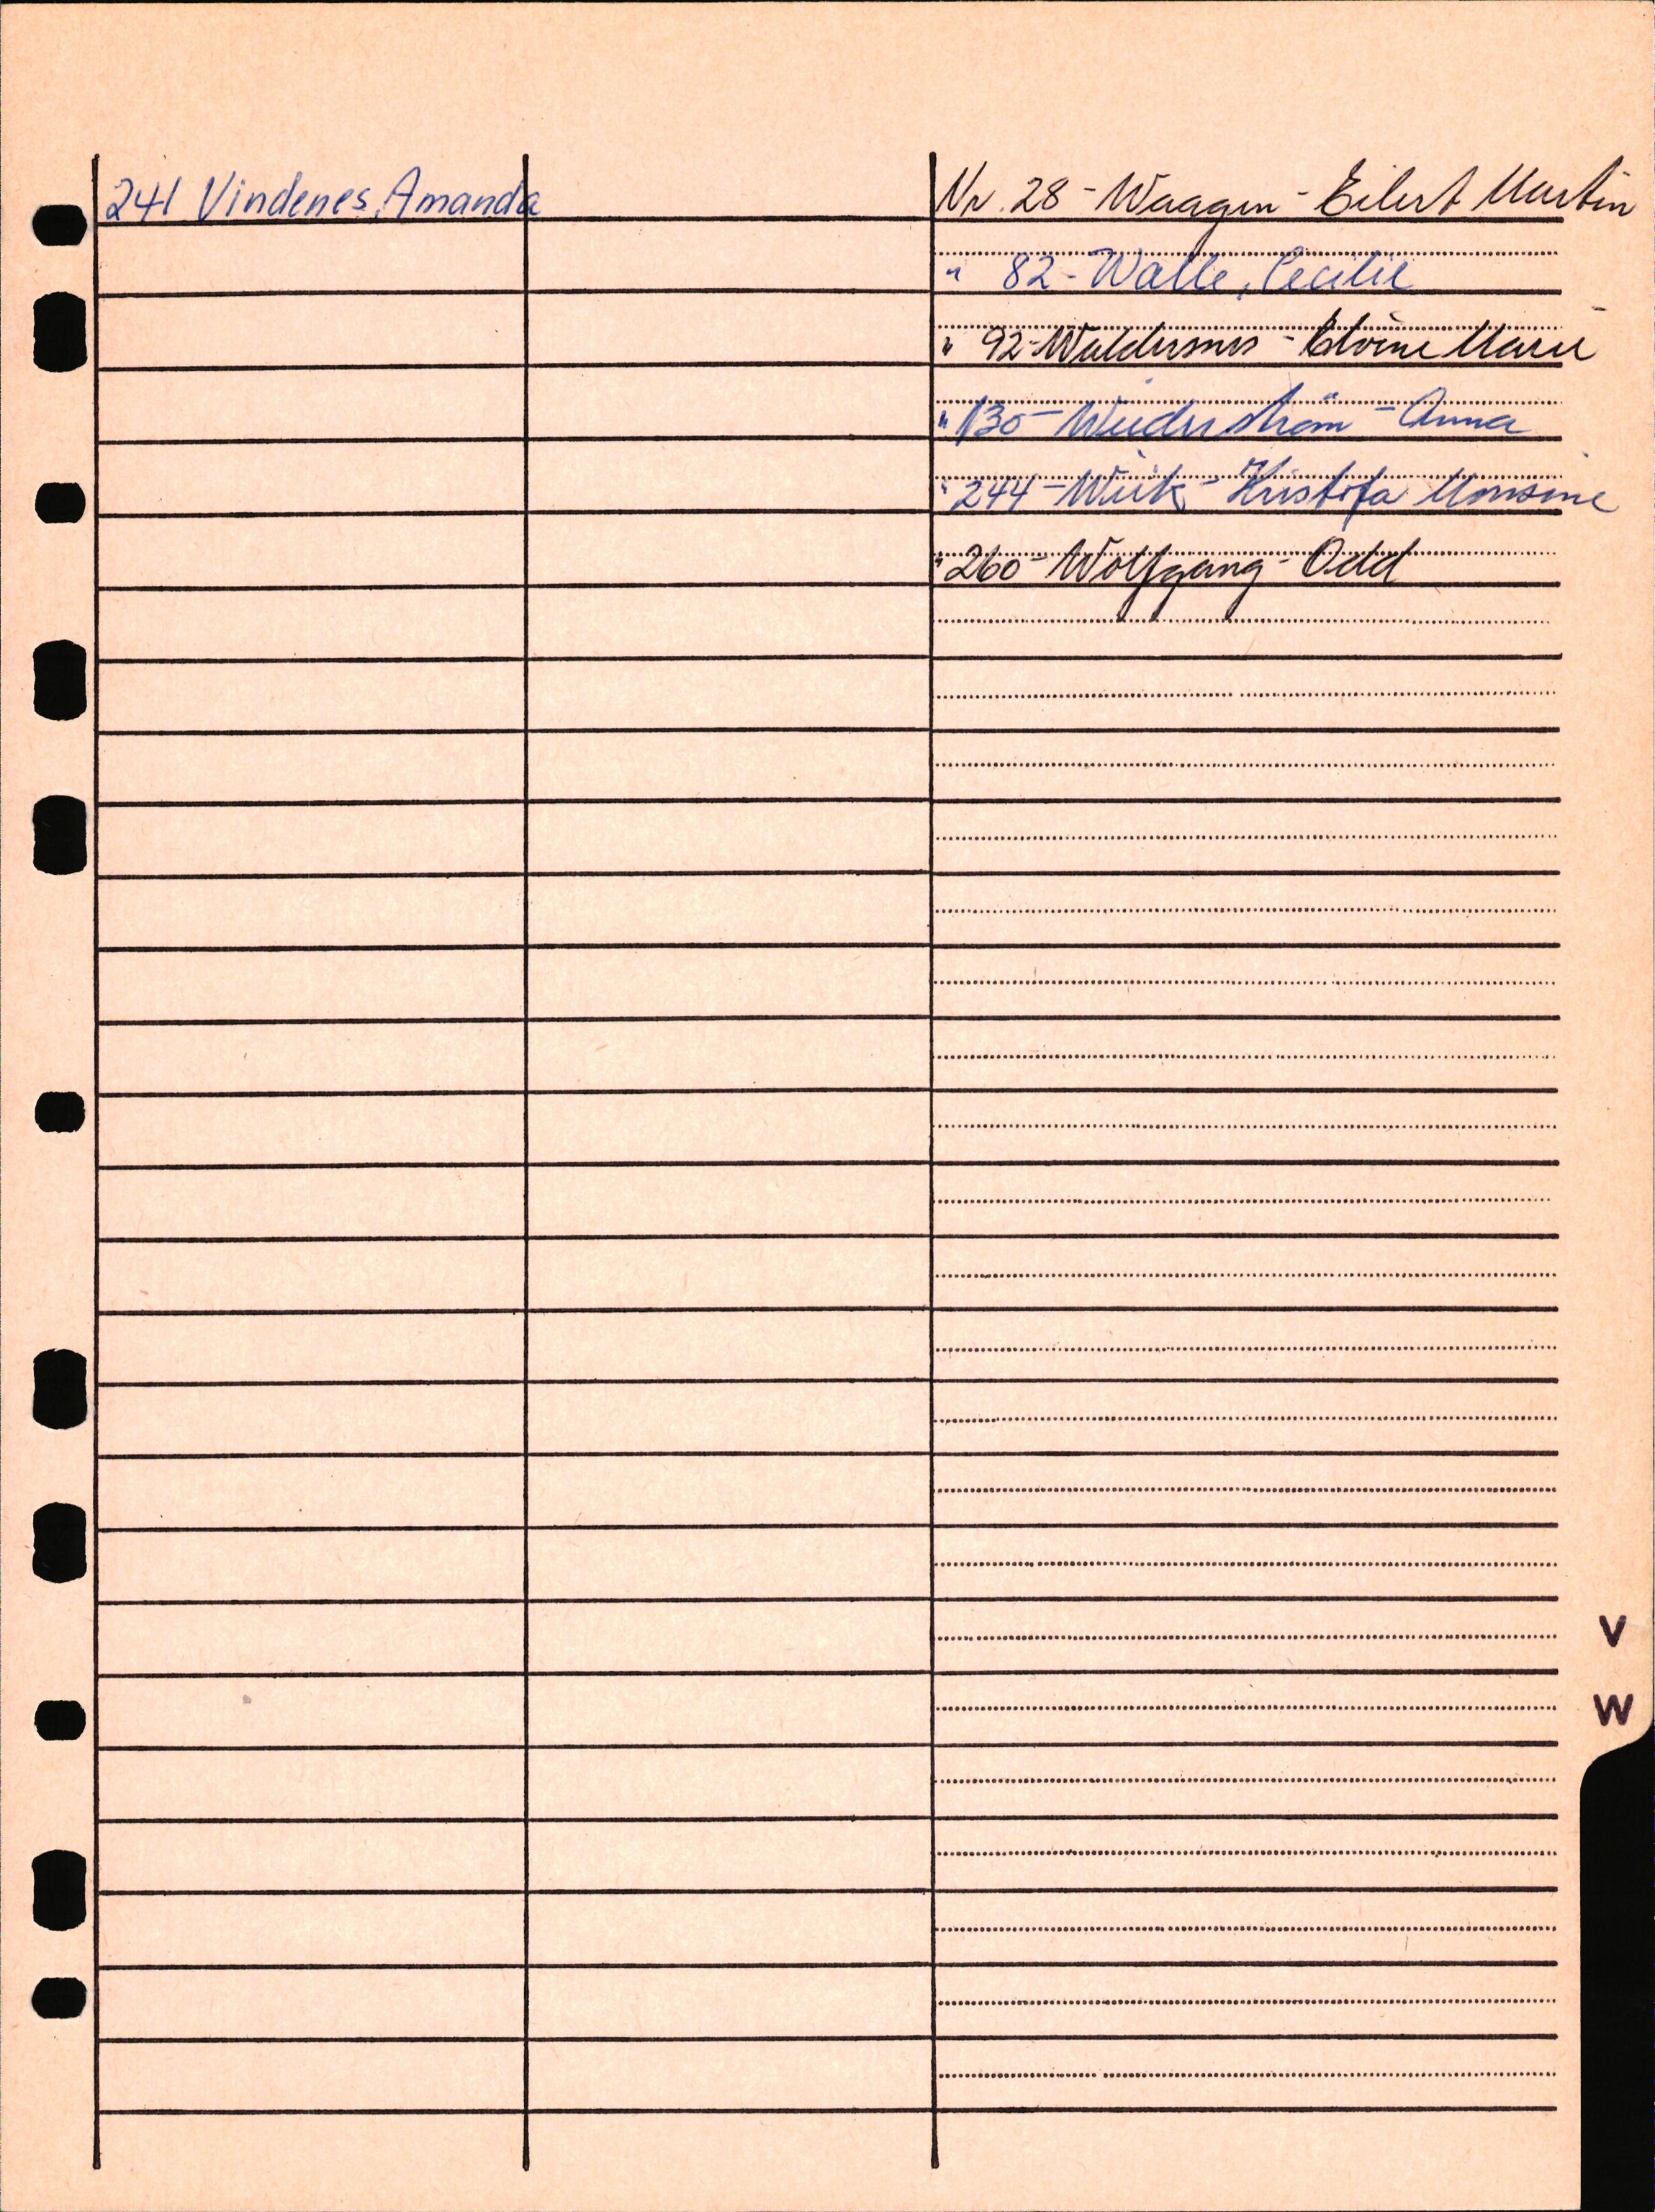 241 Vindenes, Amanda
Nr. 28 - Waagen - Eilert Martin
" 82 - Walle, Cecilie
" 92 - Waldersnes - Marie
" 130 - Weiderström - Anna
" 244 - Wiik - Kristofa Monsine
" 260 - Wolfgang - Odd
V
W